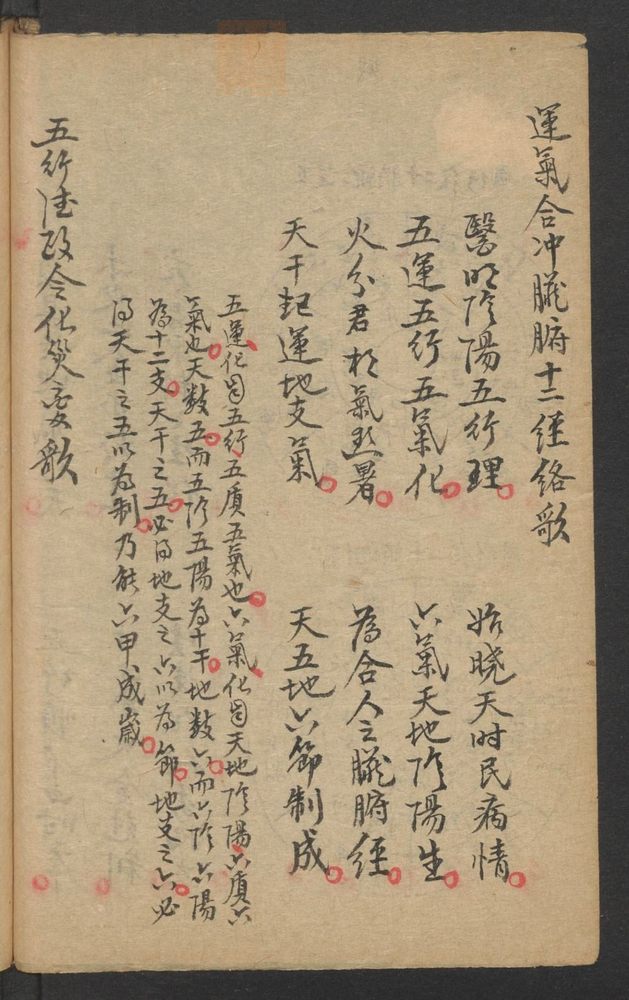 運氣合冲臟腑十二經絡歌
醫明陰陽五行理。 始曉天時民病情。
五運五行五氣化。 六氣天地陰陽生。
火分君相氣熱暑。 為合人之臟腑經。
天干起運地支氣。 天五地六節制成。
五運化自五行五質五氣也。六氣化自天地陰陽六質六
氣也。天數五。而五陰五陽為十干。地數六。而六陰六陽
為十二支。天干之五。必得地支之六以為節。地支之六。必
得天干之五以為制。乃能六甲成歲。
五行德政令化災變歌